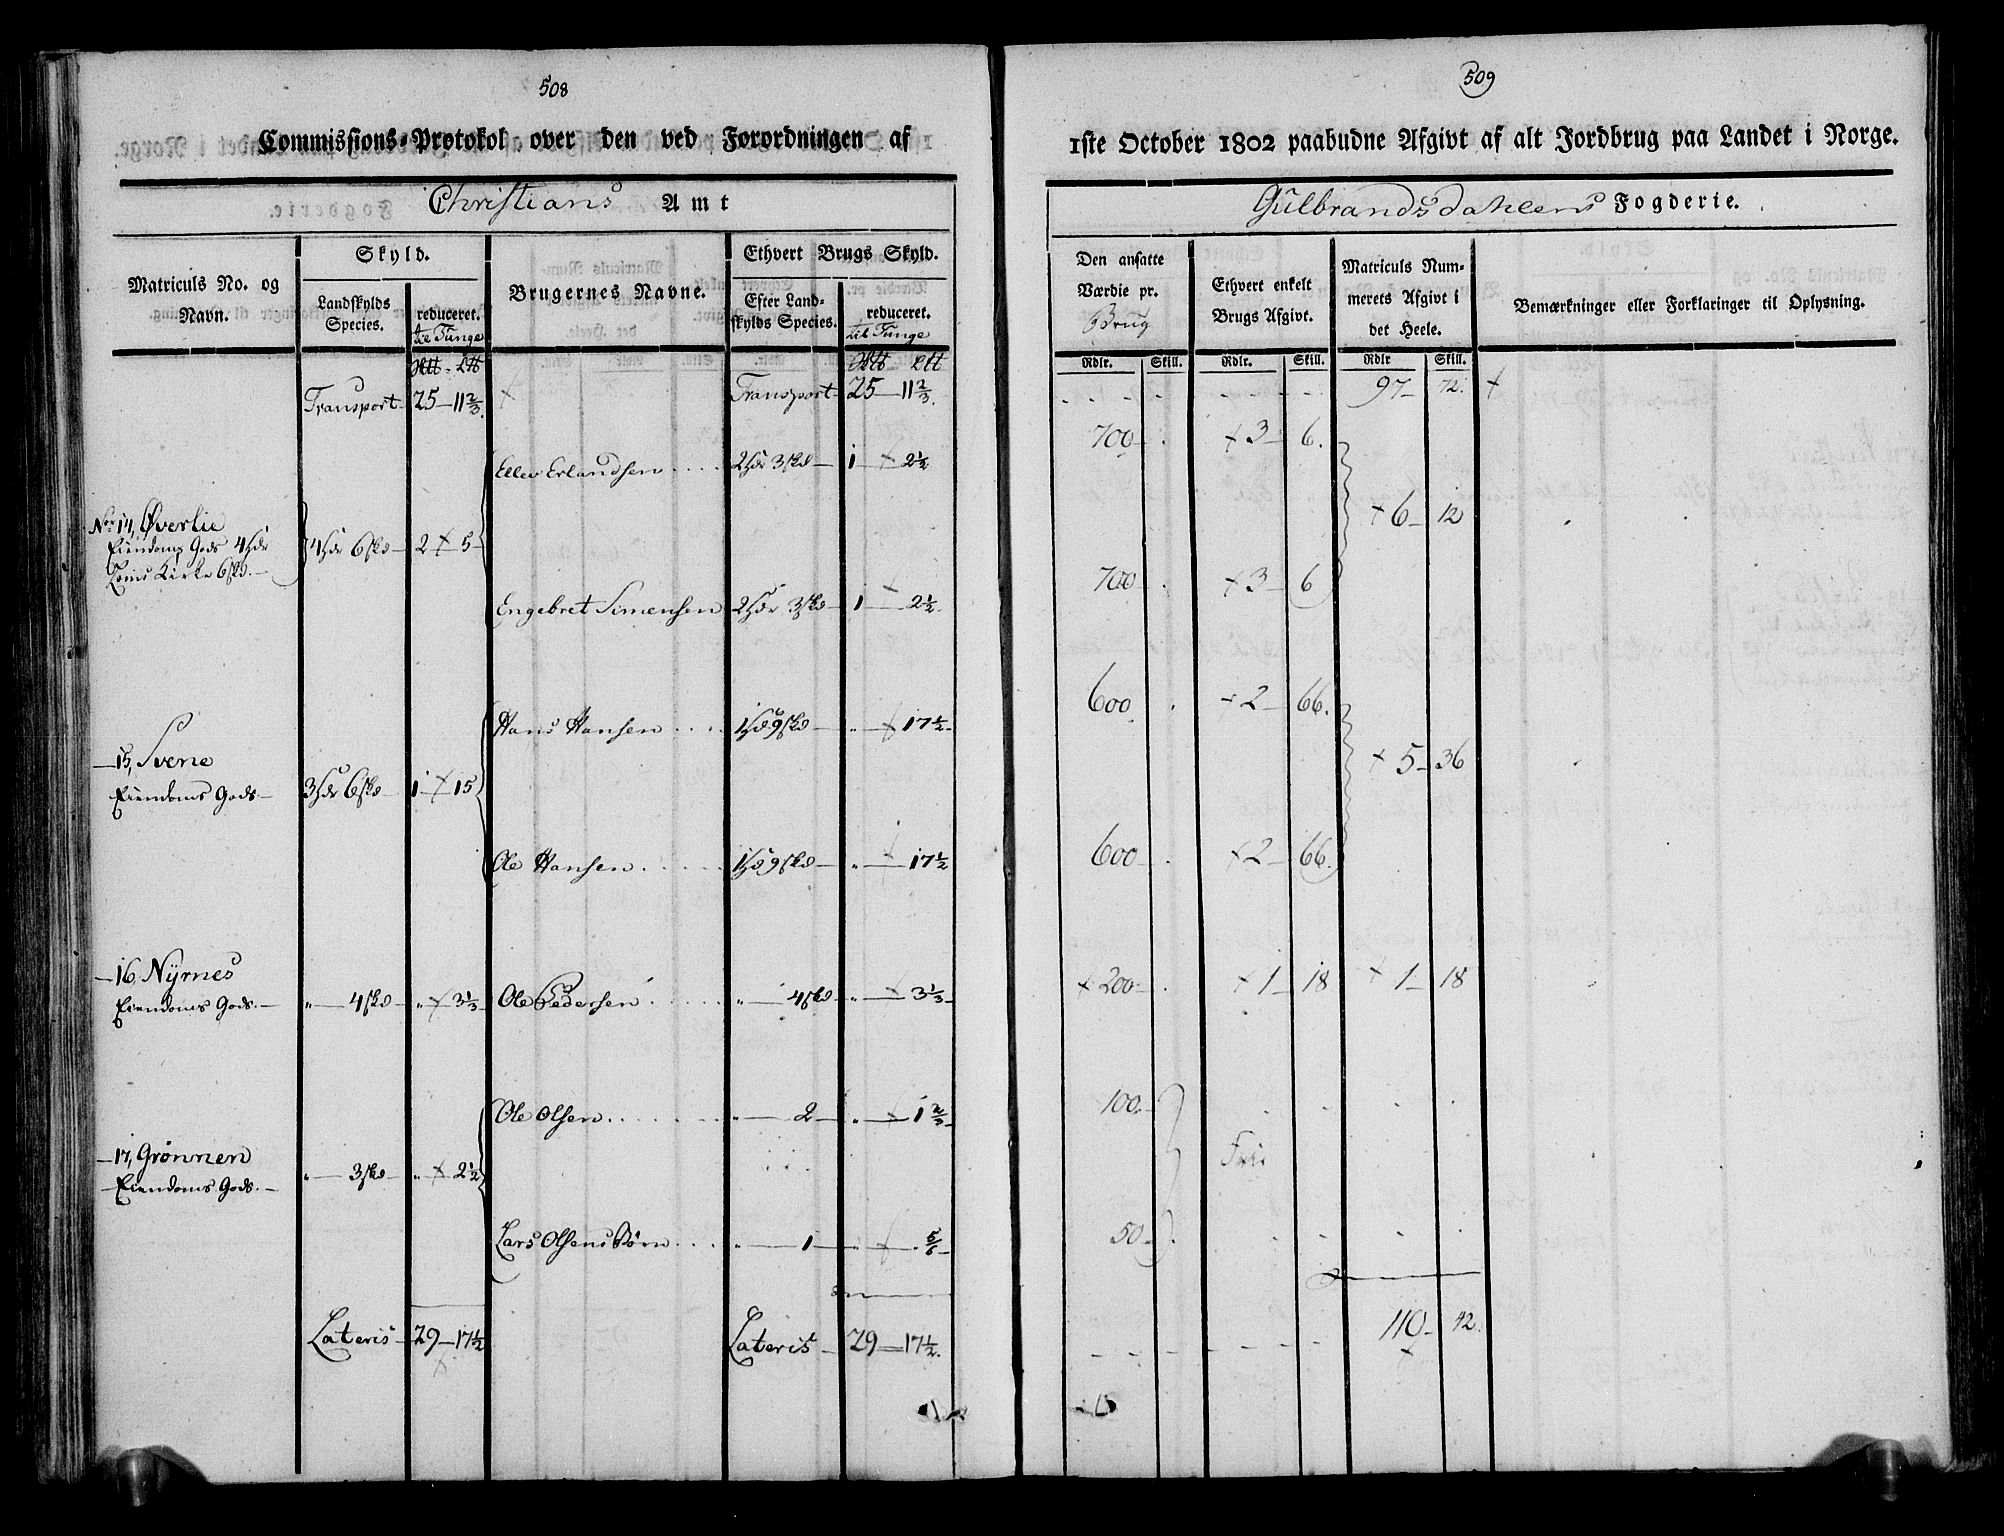 508
Commissions-Protokol over den ved Forordningen af
Christians Amt
Matriculs No. og Navn.
Skyld.
Landskylds Species.
reduceret. til Tunge
Brugernes Navne.
Ethvert Brugs Skyld.
Efter Landskylds Species.
reduceret. til Tunge
Transport 25 — 11 2/3
Transport — 25 — 11 2/3.
Ellev Erlandsen . . . . 2 3 — 1 — 2 1/2
No 14, Øverlie
Eiendoms Gods 4
Loms Kirke 6
4 6 — 2 + 5
Engebret Simensen 2 3 — 1 — 2 1/2.
Hans Hansen . . . . 1 9 — „ — 17 1/2
15, Svene
Eiendoms Gods — 3 6 — 1 + 15
Ole Hansen . . . . . 1 9 — „ — 17 1/2
16, Nyrnes
Eiendoms Gods. — „ — 4 — „ + 3 1/3 Ole Pedersen . . . . „ — 4 — „ + 3 1/3
Ole Olsen . . . . . . „ — 2 — „ + 1 2/3
17, Grønnen
Eiendoms Gods. — „ — 3 — „ + 2 1/2
Lars Olsens Børn . . . „ — 1 — „ + 5/6
Lateris — 29 — 17 1/2
Lateris — 29 — 17 1/2.
509
1ste October 1802 paabudne Afgivt af alt Jordbrug paa Landet i Norge.
Gulbrandsdahlens Fogderie.
Den ansatte Værdie pr. Brug
Ethvert enkelt Brugs Afgivt.
Matriculs Nummerets Afgivt i det Heele.
Bemærkninger eller Forklaringer til Oplysning.
Rdlr. Skill. Rdlr. Skill. Rdlr Skill.
97 — 72. +
700 — . + 3 — 6.
+ 6 — 12
700 . + 3 — 6
600 . + 2 — 66.
+ 5 — 36
600 — . + 2 — 66.
+ 200 — . + 1 — 18 + 1 — 18
100 —
Frie
50 — .
110 — 42.